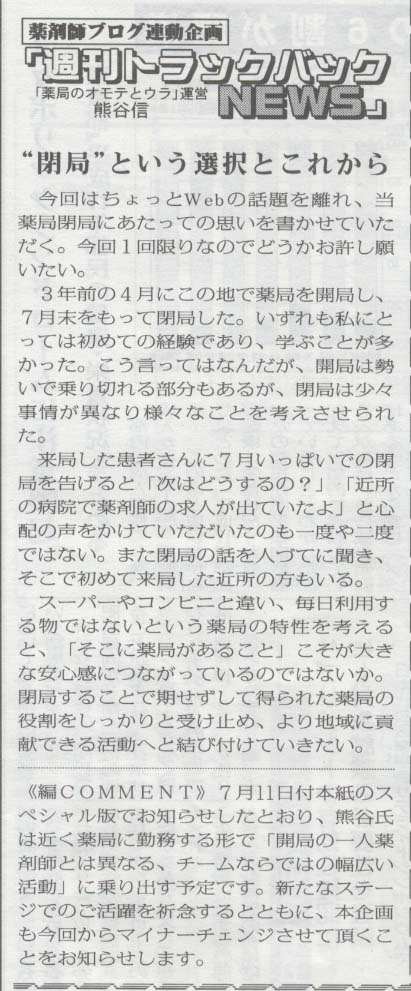 薬剤師ブログ連動企画
「週刊トラックバック
NEWS」
「薬局のオモテとウラ」運営
熊谷信
“閉局”という選択とこれから
　今回はちょっとWebの話題を離れ、当
薬局閉局にあたっての思いを書かせていた
だく。今回1回限りなのでどうかお許し願
いたい。
　3年前の4月にこの地で薬局を開局し、
7月末をもって閉局した。いずれも私にと
っては初めての経験であり、学ぶことが多
かった。こう言ってはなんだが、開局は勢
いで乗り切れる部分もあるが、閉局は少々
事情が異なり様々なことを考えさせられ
た。
　来局した患者さんに7月いっぱいでの閉
局を告げると「次はどうするの？」「近所
の病院で薬剤師の求人が出ていたよ」と心
配の声をかけていただいたのも一度や二度
ではない。また閉局の話を人づてに聞き、
そこで初めて来局した近所の方もいる。
　スーパーやコンビニと違い、毎日利用す
る物ではないという薬局の特性を考える
と、「そこに薬局があること」こそが大き
な安心感につながっているのではないか。
閉局することで期せずして得られた薬局の
役割をしっかりと受け止め、より地域に貢
献できる活動へと結び付けていきたい。
《編COMMENT》7月11日付本紙のス
ペシャル版でお知らせしたとおり、熊谷氏
は近く薬局に勤務する形で「開局の一人薬
剤師とは異なる、チームならではの幅広い
活動」に乗り出す予定です。新たなステー
ジでのご活躍を祈念するとともに、本企画
も今回からマイナーチェンジさせて頂くこ
とをお知らせします。